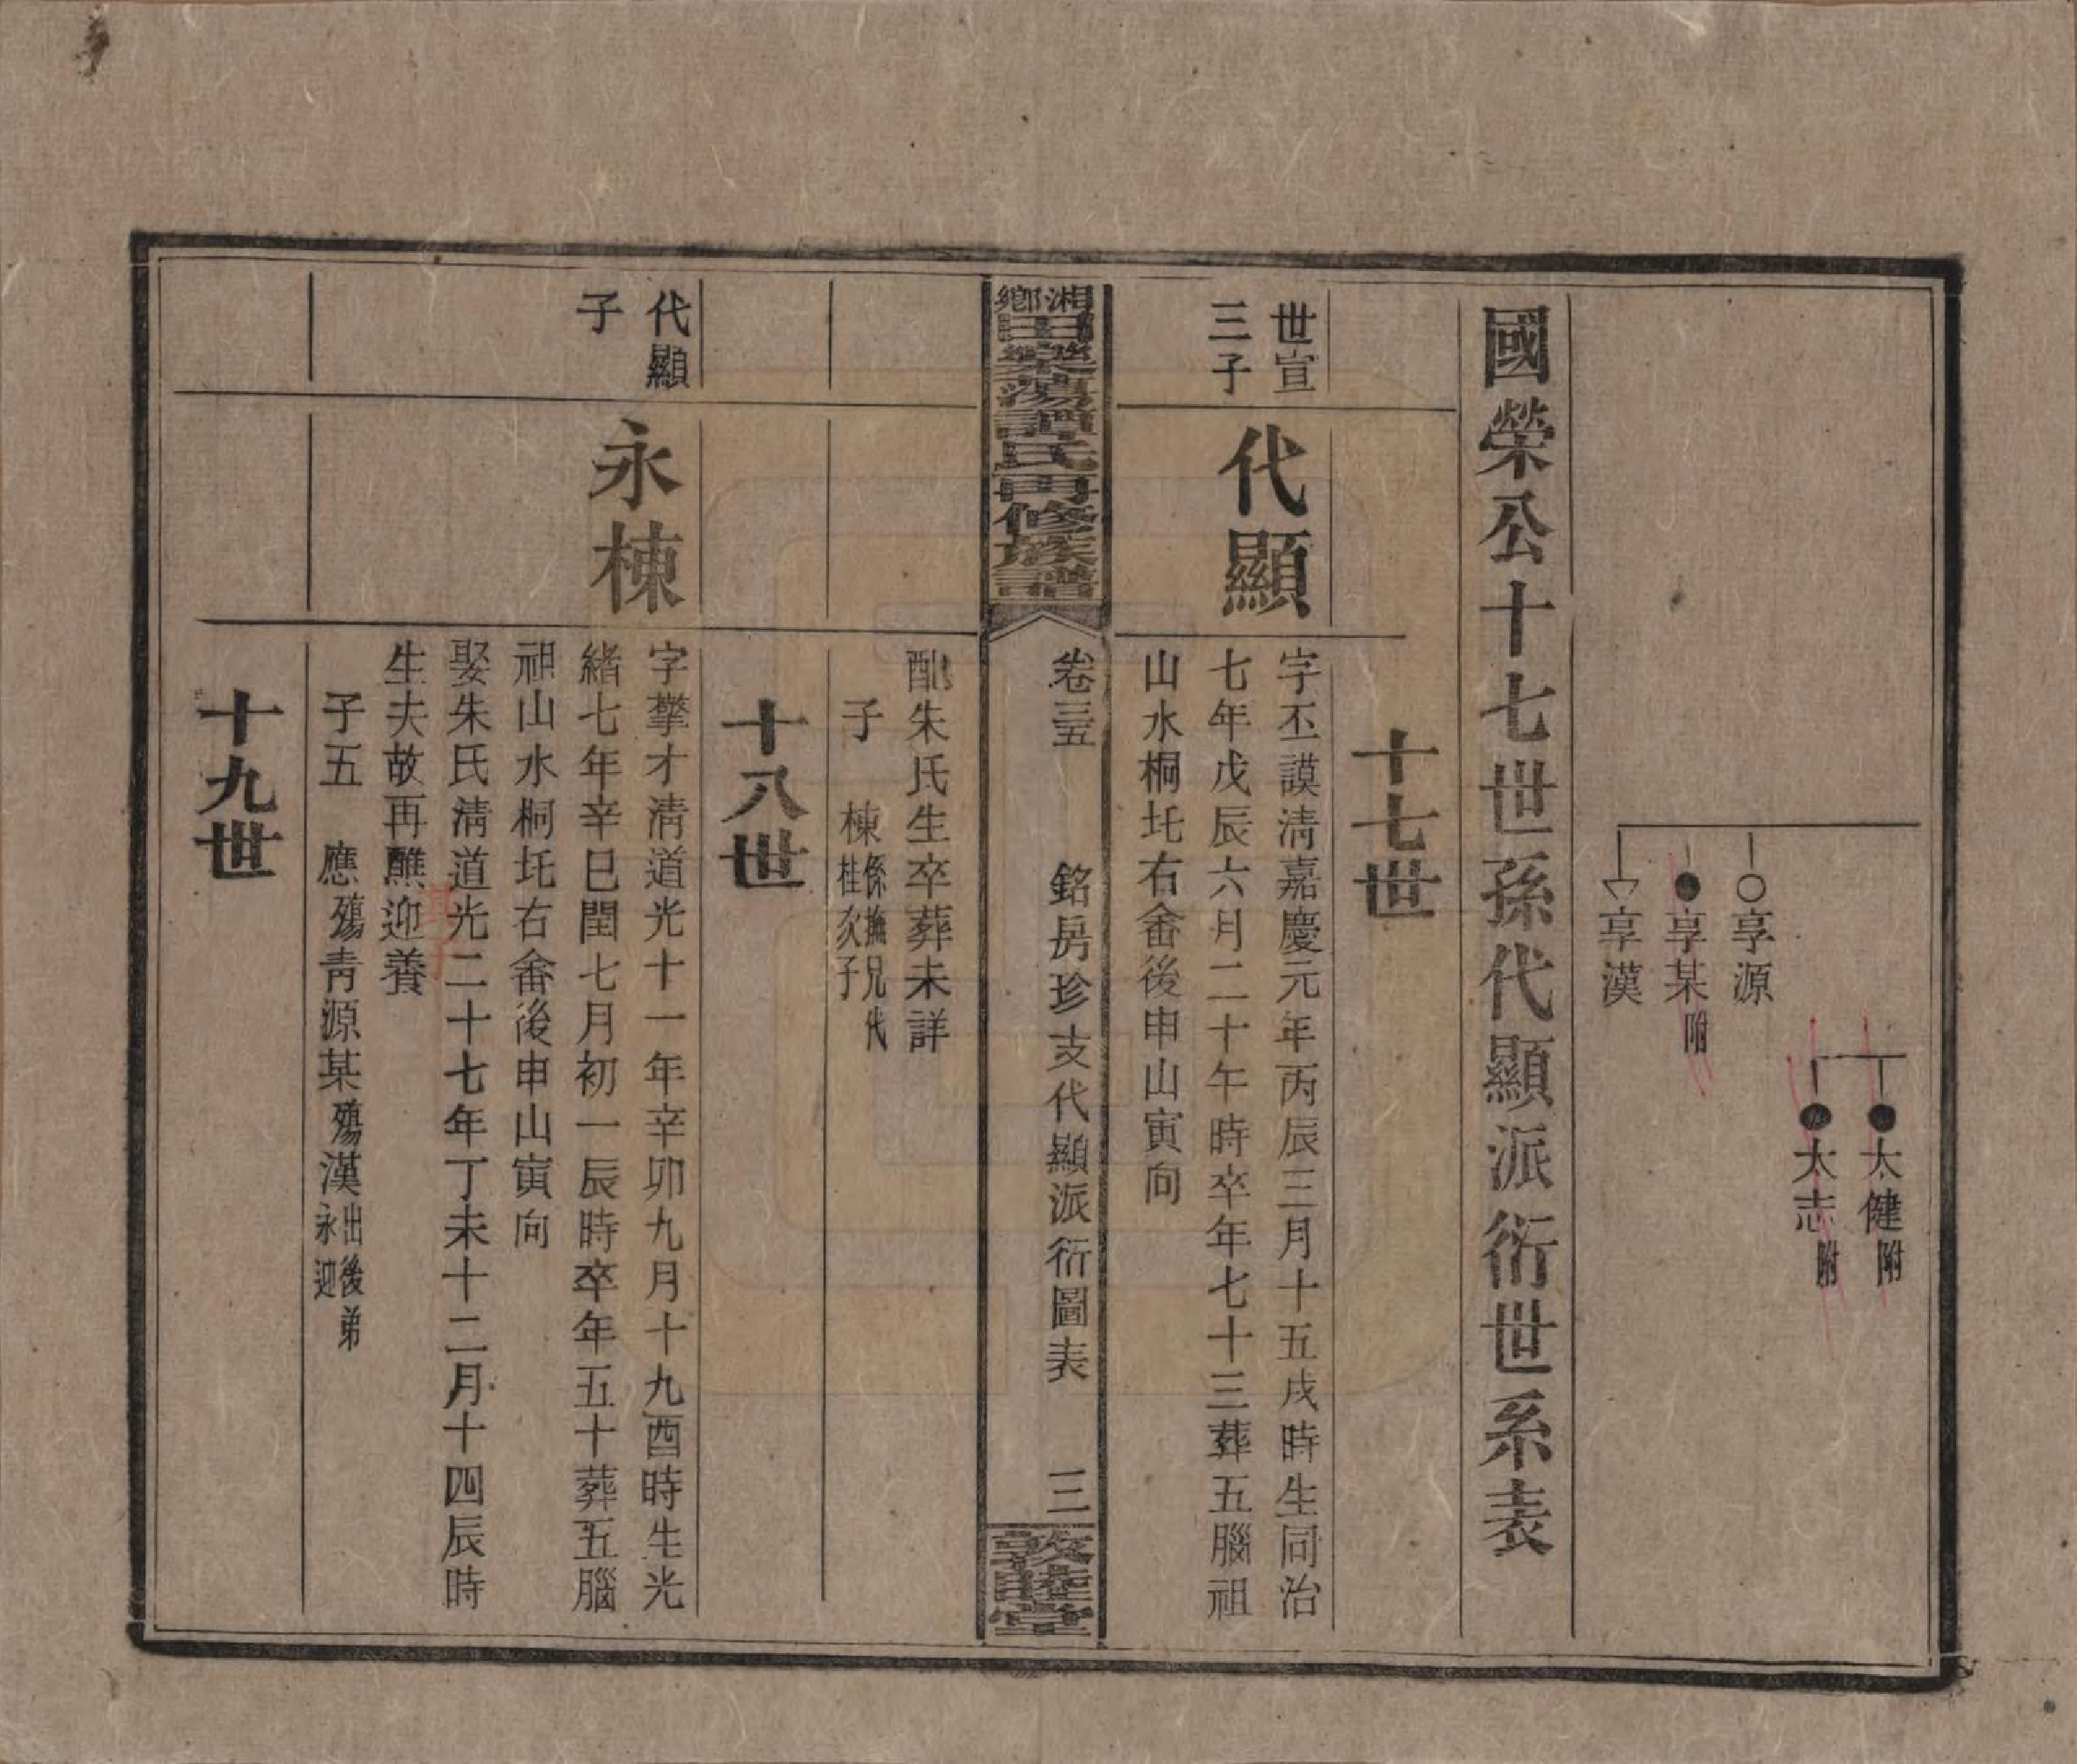 太健附
太志附
享源
享某附
享漢
國榮公十七世孫代顯派衍世系表
十七世
世宣
三子
代顯
字丕謨淸嘉慶元年丙辰三月十五戌時生同治
七年戊辰六月二十午時卒年七十三葬五腦祖
山水桐圫右畲後申山寅向
湘鄉田㮤蕩譚氏再修族譜
卷三五
銘房珍支代顯派衍圖表
三
敦睦堂
配朱氏生卒葬未詳
子 棟係撫兄代桂次子
十八世
代顯
子
永棟
字擎才淸道光十一年辛卯九月十九酉時生光
緖七年辛巳閏七月初一辰時卒年五十葬五腦
祖山水桐圫右畲後申山寅向
娶朱氏淸道光二十七年丁未十二月十四辰時
生夫故再醮迎養
子五 應殤靑源某殤漢出後弟永迎
十九世